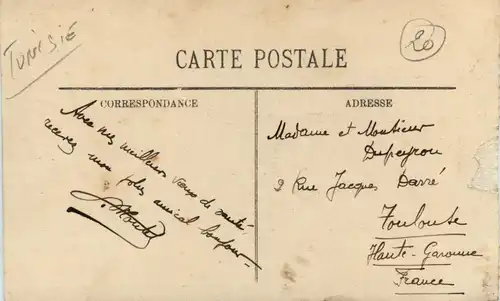 TUNISIE
20
CARTE POSTALE
CORRESPONDANCE
Avec mes meilleurs vœux de santé
recevez mon plus amical bonjour
ADRESSE
Madame et Monsieur
Dupeyron
9 Rue Jacques Darré
Toulouse
Haute-Garonne
France